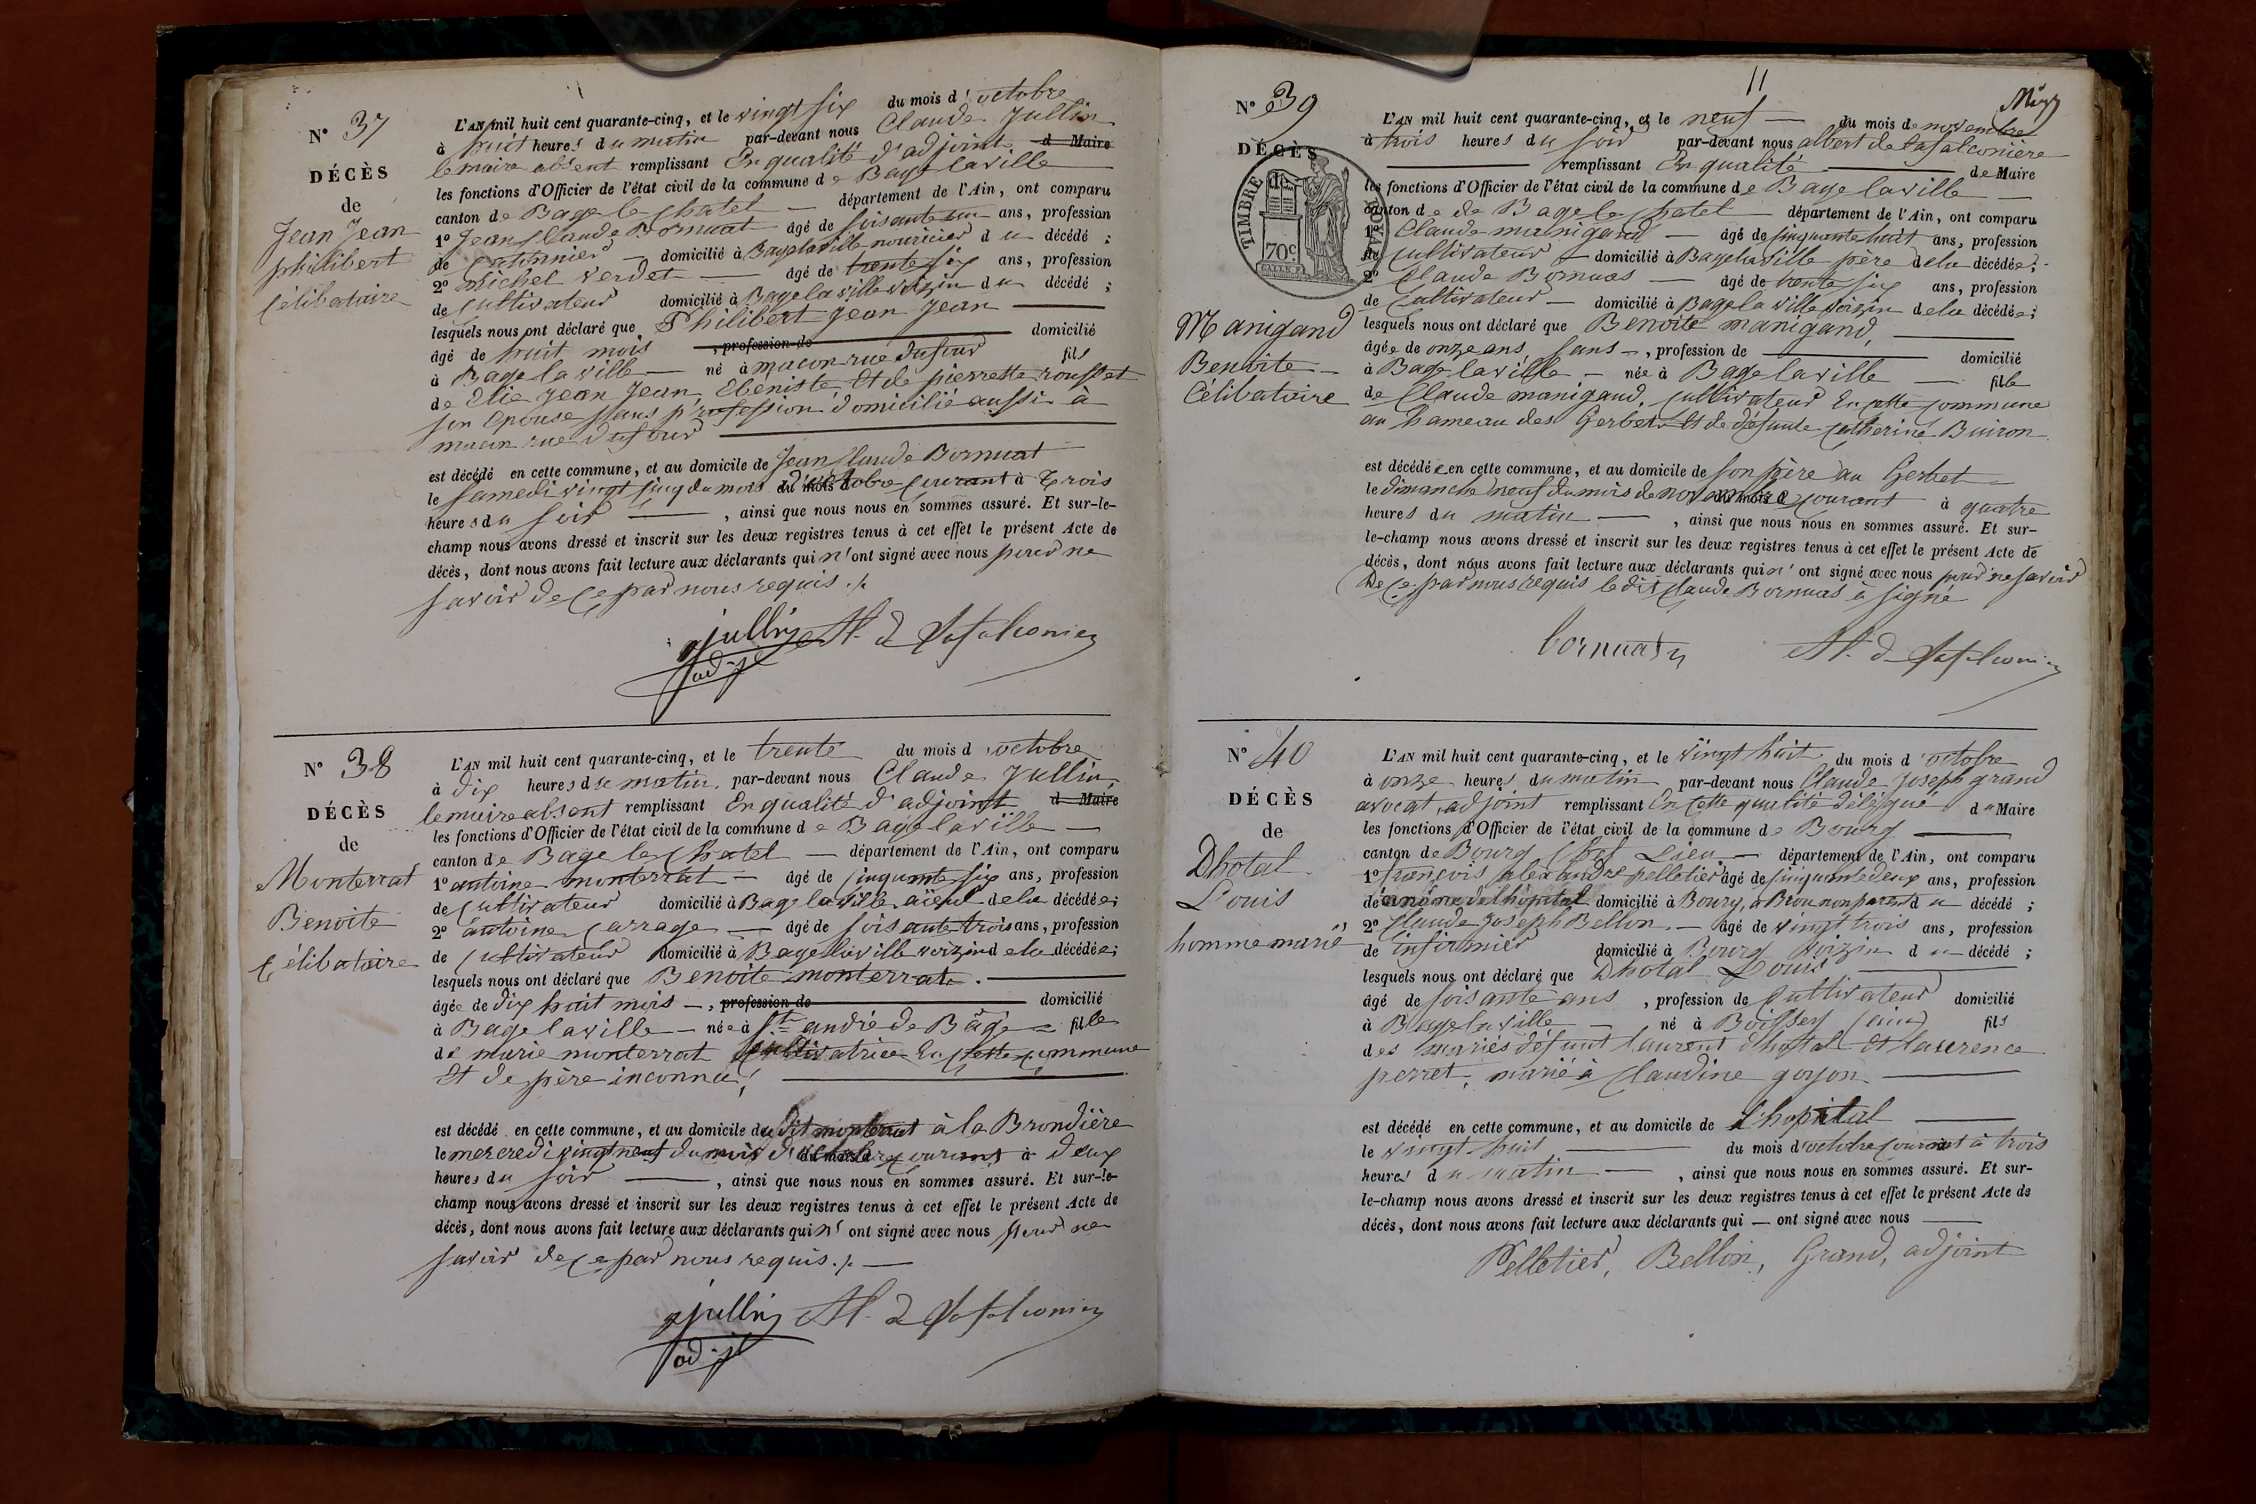 N° 37
DÉCÈS
de
Jean Jean
philibert
Célibataire
L'AN mil huit cent quarante-cinq, et le vingt six du mois d'octobre
à huit heures du matin par-devant nous Claude Jullin
le maire absent remplissant En qualité d'adjoint d Maire
les fonctions d'Officier de l'état civil de la commune de Bagé laville
canton de Bage le Chatel — département de l'Ain, ont comparu
1° Jean Claude Bornuat âgé de soisante un ans, profession
de domicilié à Bagelaville nouricier du décédé ;
2° michel verdet — âgé de trente six ans, profession
de cultivateur domicilié à Bagelaville voizin du décédé ;
lesquels nous ont déclaré que Philibert Jean Jean —
âgé de huit mois , profession de domicilié
à Bage laville — né à macon rue dufour fils
de Elie Jean Jean, Ebéniste, Et de pierrette rousset
son Epouse sans profession domicilié aussi à
macon rue dufour —
est décédé en cette commune, et au domicile de Jean Claude Bornuat
le samedi vingt cinq du mois d'octobre courant à Trois
heures du soir — , ainsi que nous nous en sommes assuré. Et sur-le-
champ nous avons dressé et inscrit sur les deux registres tenus à cet effet le présent Acte de
décès, dont nous avons fait lecture aux déclarants qui n'ont signé avec nous pour ne
savoir de ce par nous requis ./.
Jullin Al. d Lafalconier
adj
N° 38
DÉCÈS
de
Monterrat
Benoite
Célibataire
L'AN mil huit cent quarante-cinq, et le trente du mois d octobre
à dix heures de matin, par-devant nous Claude Jullin
le maire absent remplissant En qualité d'adjoint d Maire
les fonctions d'Officier de l'état civil de la commune de Bagé laville —
canton de Bage le Chatel — département de l'Ain, ont comparu
1° antoine monterrat — âgé de cinquante six ans, profession
de cultivateur domicilié à Bage laville aïeul de la décédée ;
2° antoine carrage — âgé de soisante trois ans, profession
de cultivateur domicilié à Bagelaville voizin de la décédée ;
lesquels nous ont déclaré que Benoite monterrat. —
âgée de dix huit mois — , profession de domicilié
à Bage laville — née à St. andré de Bâgé = fille
de marie monterrat cultivatrice En cette commune
Et de père inconnu, —
est décédé en cette commune, et au domicile du dit monterrat à la Brondière
le mercredi vingt neuf du mois d'octobre courant à deux
heures du soir — , ainsi que nous nous en sommes assuré. Et sur-le-
champ nous avons dressé et inscrit sur les deux registres tenus à cet effet le présent Acte de
décès, dont nous avons fait lecture aux déclarants qui n' ont signé avec nous pour ne
savoir de ce par nous requis ./. —
Jullin Al. d Lafalconier
adj
11
N° 39
DÉCÈS
TIMBRE ROYAL
70c
Manigand
Benoite —
Célibataire
L'AN mil huit cent quarante-cinq, et le neuf — du mois de novembre
à trois heures du soir par-devant nous albert de Lafalconière
— remplissant En qualité — de Maire
les fonctions d'Officier de l'état civil de la commune de Bage laville —
canton de de Bage le chatel — département de l'Ain, ont comparu
1° Claude manigand — âgé de cinquante huit ans, profession
de cultivateur — domicilié à Bagelaville père de la décédée ;
2° Claude Bornuas — âgé de trente six ans, profession
de Cultivateur — domicilié à Bagelaville voizin de la décédée ;
lesquels nous ont déclaré que Benoite manigand, —
âgée de onze ans, sans — , profession de — domicilié
à Bage laville — née à Bage laville — fille
de Claude manigand, cultivateur En cette commune
au hameau des Gerbet Et de défunte catherine Buiron
est décédée en cette commune, et au domicile de son père au Gerbet —
le dimanche neuf du mois de novembre courant à quatre
heures du matin — , ainsi que nous nous en sommes assuré. Et sur-
le-champ nous avons dressé et inscrit sur les deux registres tenus à cet effet le présent Acte de
décès, dont nous avons fait lecture aux déclarants qui n' ont signé avec nous pour ne savoir
De ce par nous requis le dit Claude Bornuas à signé
bornuas Al. d Lafalconier
N° 40
DÉCÈS
de
Dhotal
Louis
homme marié
L'AN mil huit cent quarante-cinq, et le vingt huit du mois d'octobre
à onze heures du matin — par-devant nous Claude Joseph grand
avocat, adjoint remplissant En cette qualité délégué du Maire
les fonctions d'Officier de l'état civil de la commune de Bourg —
canton de Bourg Chef Lieu, — département de l'Ain, ont comparu
1° françois alexandre pelletier âgé de cinquante deux ans, profession
de économe de l'hôpital domicilié à Bourg, à Brou non parent du décédé ;
2° Claude Joseph Bellon. — âgé de vingt trois ans, profession
de infirmier domicilié à Bourg voizin du — décédé ;
lesquels nous ont déclaré que Dhotal Louis —
âgé de soisante ans , profession de Cultivateur domicilié
à Bagelaville — né à Boissey (ain) fils
des mariés défunt laurent dhotal Et laurence
perret, marié à Claudine goyon —
est décédé en cette commune, et au domicile de L'hopital —
le vingt huit — du mois d'octobre courant à trois
heures du matin — , ainsi que nous nous en sommes assuré. Et sur-
le-champ nous avons dressé et inscrit sur les deux registres tenus à cet effet le présent Acte de
décès, dont nous avons fait lecture aux déclarants qui — ont signé avec nous —
Pelletier, Bellon, Grand, adjoint